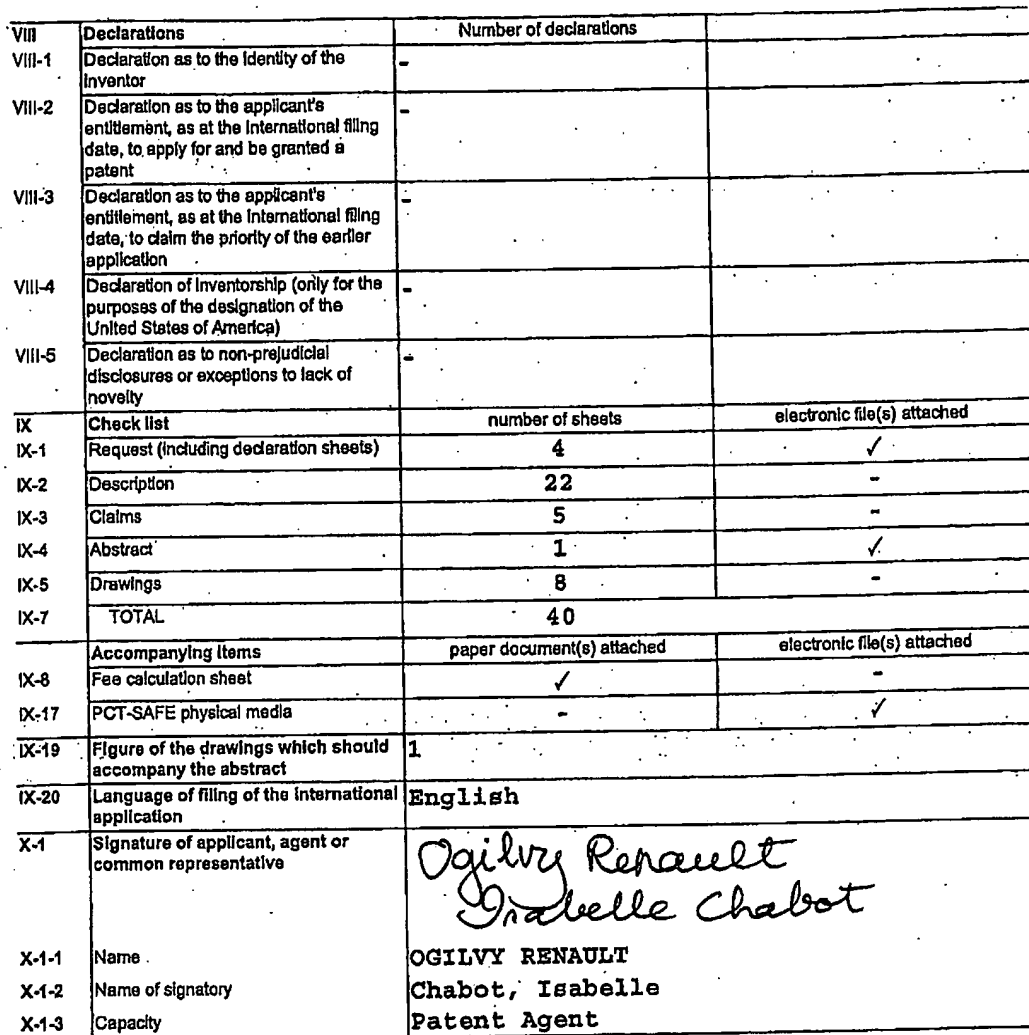 VIII Declarations Number of declarations
VIII-1 Declaration as to the identity of the -
inventor
VIII-2 Declaration as to the applicant's -
entitlement, as at the international filing
date, to apply for and be granted a
patent
VIII-3 Declaration as to the applicant's -
entitlement, as at the international filing
date, to claim the priority of the earlier
application
VIII-4 Declaration of inventorship (only for the -
purposes of the designation of the
United States of America)
VIII-5 Declaration as to non-prejudicial -
disclosures or exceptions to lack of
novelty
IX Check list number of sheets electronic file(s) attached
IX-1 Request (including declaration sheets) 4 ✓
IX-2 Description 22 -
IX-3 Claims 5 -
IX-4 Abstract 1 ✓
IX-5 Drawings 8 -
IX-7 TOTAL 40
Accompanying items paper document(s) attached electronic file(s) attached
IX-8 Fee calculation sheet ✓ -
IX-17 PCT-SAFE physical media - ✓
IX-19 Figure of the drawings which should 1
accompany the abstract
IX-20 Language of filing of the international English
application
X-1 Signature of applicant, agent or Ogilvy Renault
common representative Isabelle Chabot
X-1-1 Name OGILVY RENAULT
X-1-2 Name of signatory Chabot, Isabelle
X-1-3 Capacity Patent Agent